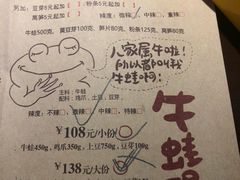 另加: 豆芽5元起加□ 粉条6元起加□
莴笋6元起加□
辣度: 微辣□ 中辣□ 重辣□
牛蛙500克 黄豆芽100克 笋片80克 粉条125克 莴笋80克
人家属牛啦!
所以都叫我
牛蛙啊!
主料: 牛蛙
配料: 鸡爪、土豆、豆芽
辣度: 不辣□ 微辣□ 中辣□ 特辣□
￥108元/小份
牛蛙450克, 鸡爪350克, 土豆750克, 豆芽100克
￥138元/大份
牛蛙